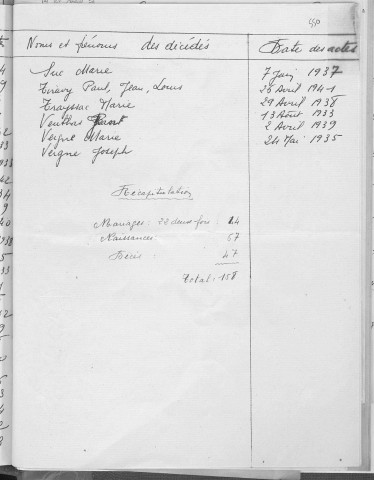 Noms et prénoms des décédés Date des actes
Suc Marie 7 Juin 1937
Trévy Paul, Jean, Louis 25 Avril 1941
Trayssac Marie 29 Avril 1938
13 Août 1933
Veigne Marie 2 Avril 1939
Vergne Joseph 24 Mai 1935
Récapitulation
Mariages: 22 deux fois: 44
Naissances: 67
Décès: 47
Total: 158